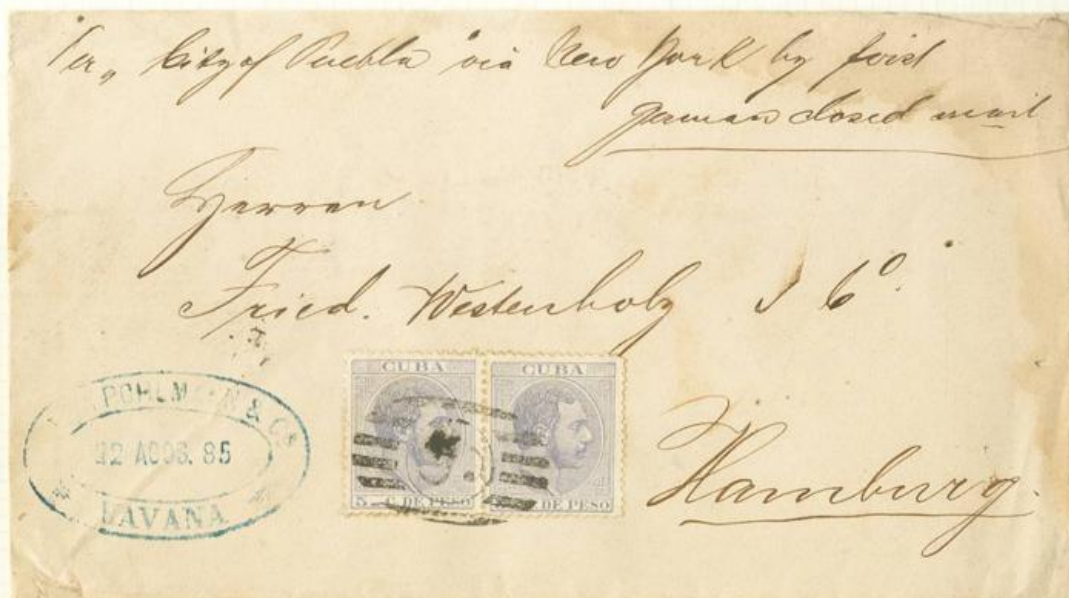 Per "City of Puebla" via New York by first
german closed mail
Herren
Fried. Westenholz & Co.
Hamburg.
POHLMANN & Co
22 AGOS. 85
HAVANA
CUBA
5 C. DE PESO
CUBA
DE PESO